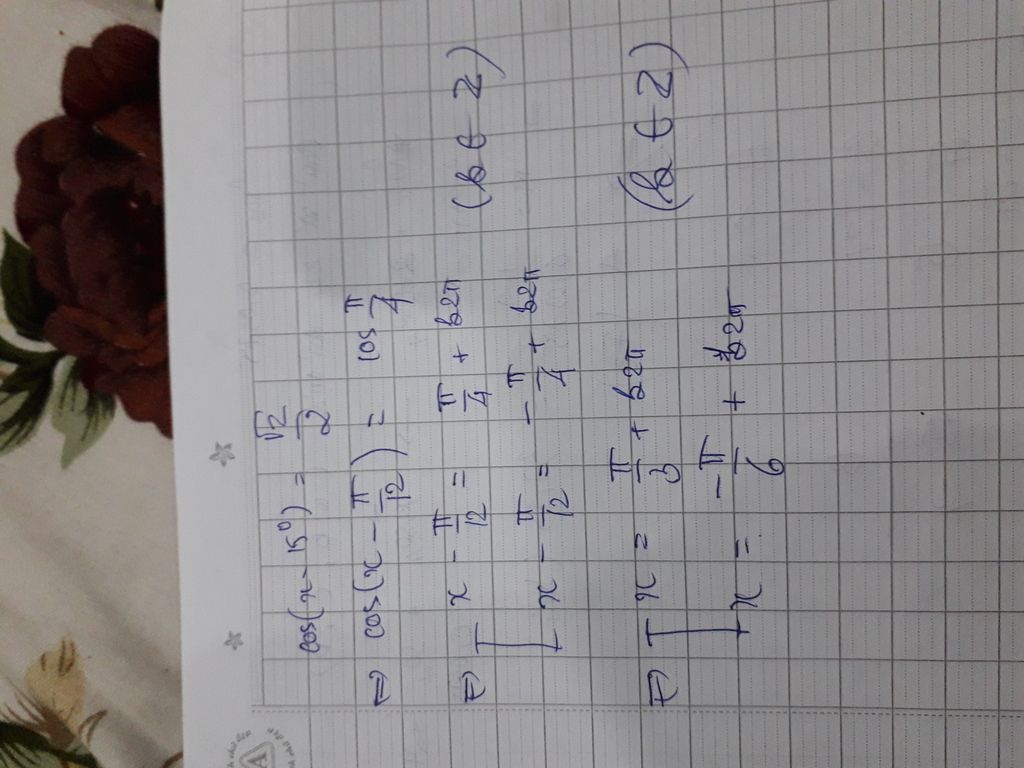 cos(x - 15°) = √2/2
⇔ cos(x - π/12) = cos π/4
⇔ [ x - π/12 = π/4 + k2π (k ∈ Z)
x - π/12 = -π/4 + k2π
⇔ [ x = π/3 + k2π (k ∈ Z)
x = -π/6 + k2π